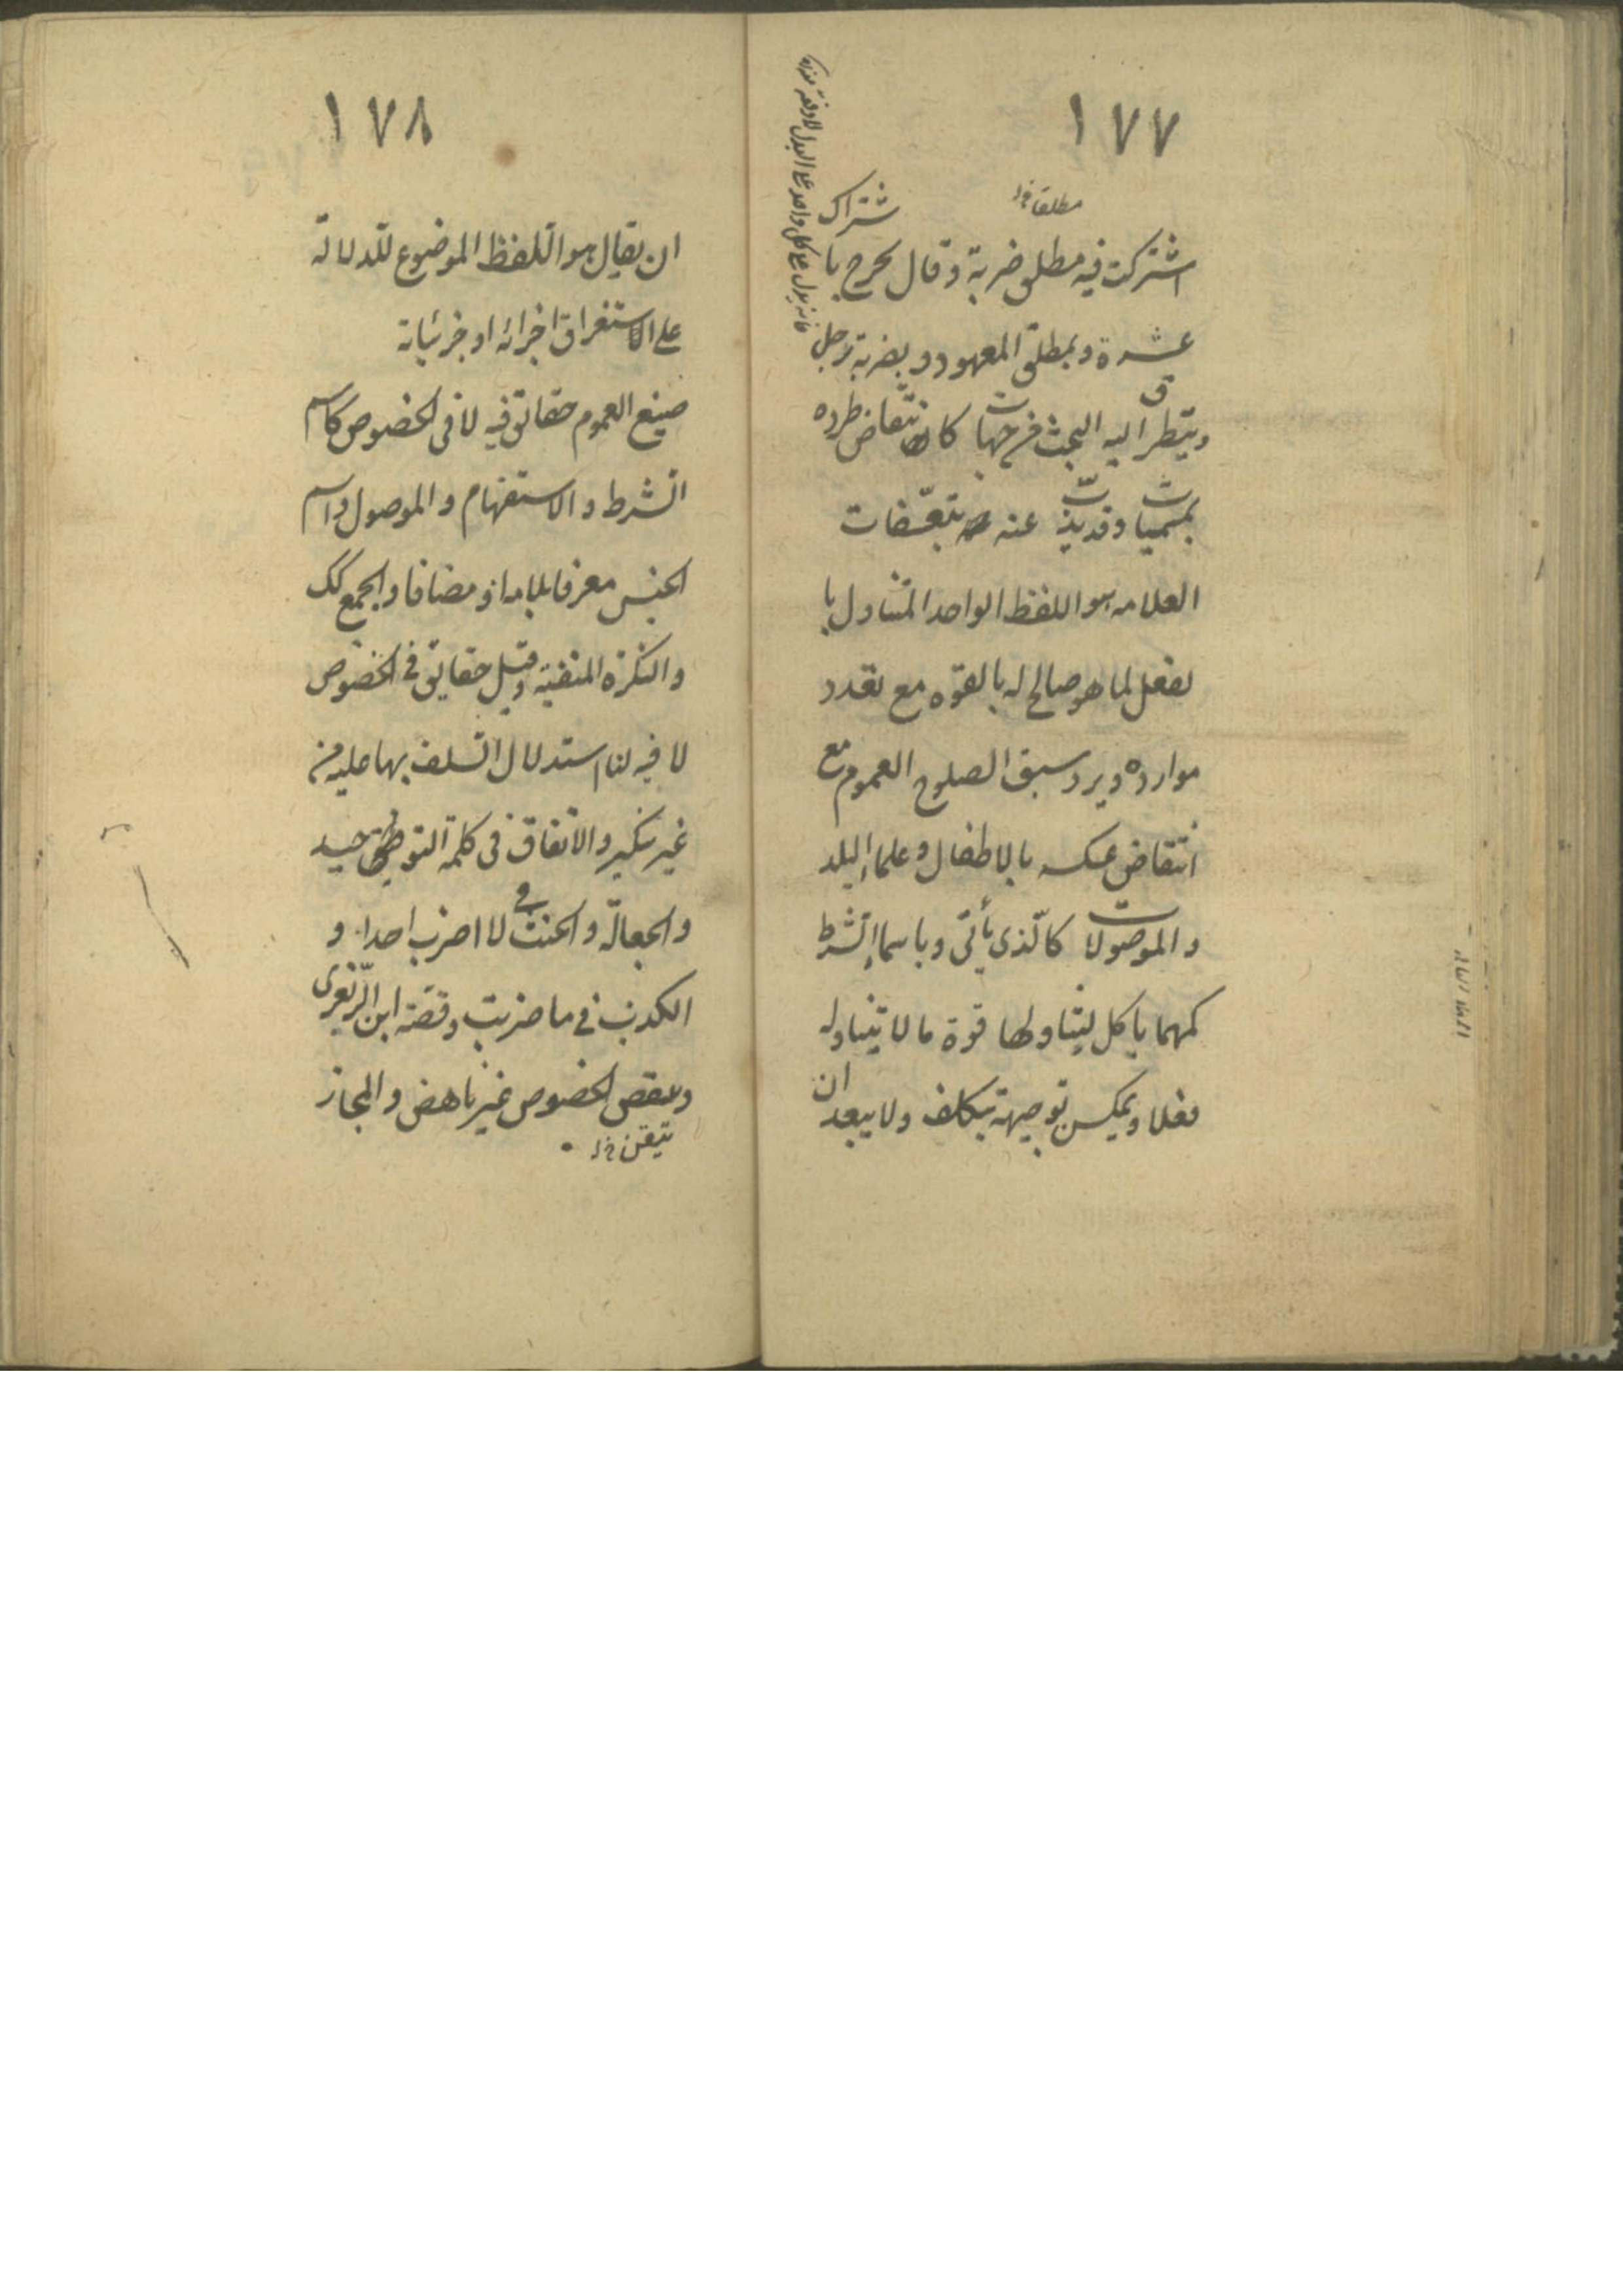 ١٧٧
مطلقا
اشتركت فيه مطلق ضربة وقال يخرج باشتراك
عشرة وبمطلق المعهود وبضربة رجل
ويتطرق اليه البحث من جهات كانتقاض طرده
بمسميات وقد يذب عنه بتعسّفات
العلامه هو اللفظ الواحد المتناول با
لفعل لما هو صالح له بالقوه مع تعدد
موارده ويرد سبق الصلوح العموم مع
انتقاض عكسه بالاطفال وعلماء البلد
والموصولات كالّذى يأتى وباسماء الشرط
كمهما يأكل ليتناولها قوة ما لا يتناوله
فعلا ويمكن توجيهه بتكلف ولا يبعد ان
فانه يدل على كل واحد على البدل لا دفعة
١٧٨
ان يقال هو اللفظ الموضوع للدلالة
على الاستغراق اجزائه او جزئياته
صيغ العموم حقائق فيه لا فى الخصوص كاسم
الشرط والاستفهام والموصول واسم
الجنس معرفا بلام او مضافا والجمع كك
والنكرة المنفية وقيل حقايق فى الخصوص
لا فيه لنا استدلال السلف بها عليه من
غير نكير والاتفاق فى كلمة التوحيد
والجعالة والحنث فى لا اضرب احدا و
الكذب فى ما ضربت وقصّة ابن الزّبعرى
و الخصوص غير ناهض والمجاز
تيقن